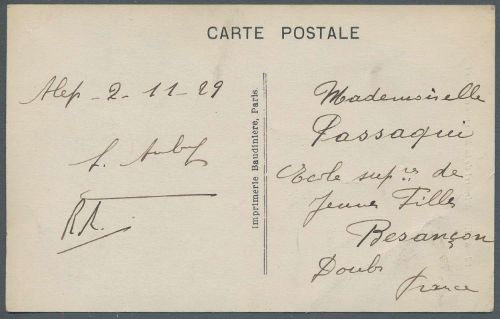 CARTE POSTALE
Alep - 2 - 11 - 29
RR.
Imprimerie Baudinière, Paris.
Mademoiselle
Passaqui
Ecole supres de
Jeunes Filles
Besançon
Doubs
France